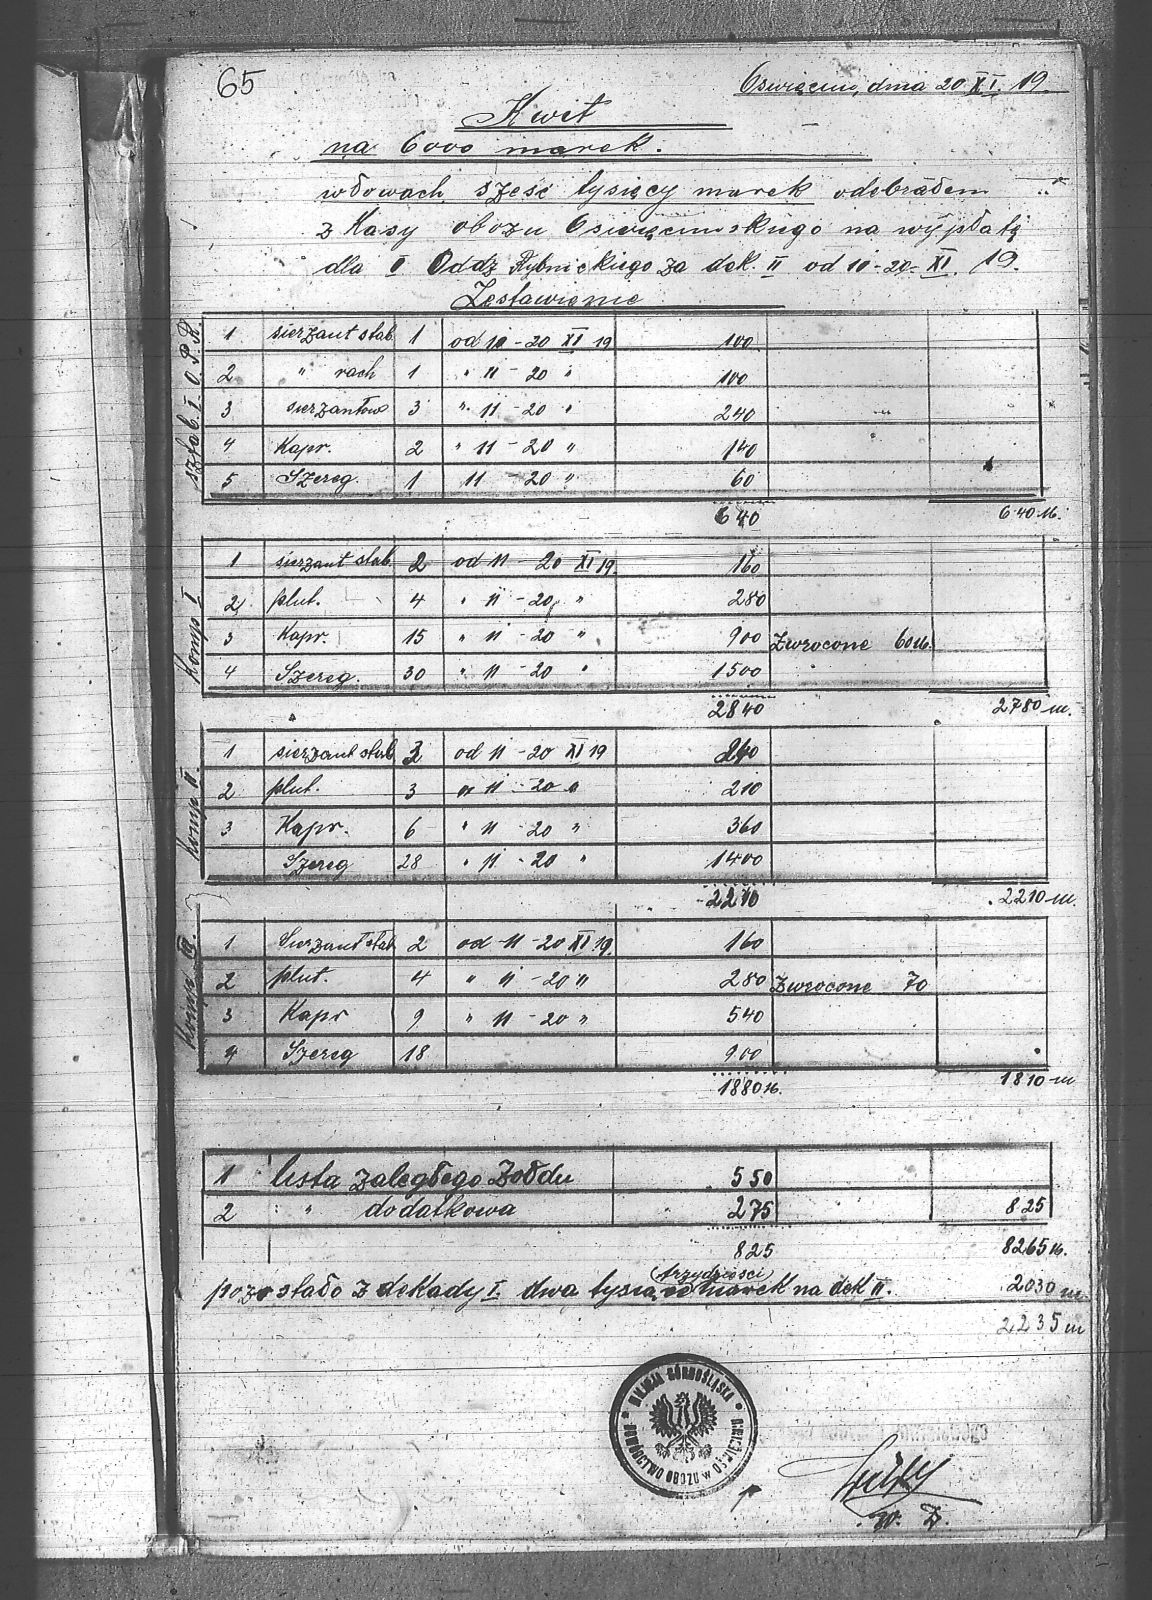 65
Oświęcim, dnia 20. XI. 19.
Kwit
na 6000 marek.
w słowach sześć tysięcy marek odebrałem
z Kasy obozu Oświęcimskiego na wypłatę
dla I Oddz Rybnickiego za dek. II od 10-20-XI. 19.
Zestawienie
sztab. I. O. P. R.
1 sierżant stab. 1 od 10-20 XI 19 100
2 " rach 1 " 11-20 " 100
3 sierżantów 3 " 11-20 " 240
4 Kapr. 2 " 11-20 " 140
5 Szereg. 1 11-20 " 60
640 640 M.
Komp I
1 sierżant stab. 2 od 11-20 XI 19. 160
2 plut. 4 " 11-20 " 280
3 Kapr. 15 " 11-20 " 900 Zwrócone 60 M.
4 Szereg. 30 " 11-20 " 1500
2840 2780 m.
Komp II.
1 sierżant stab 3 od 11-20 XI 19 240
2 plut. 3 " 11-20 " 210
3 Kapr. 6 " 11-20 " 360
Szereg 28 " 11-20 " 1400
2210 2210 m.
Komp III.
1 Sierżant stab 2 od 11-20 XI 19. 160
2 plut. 4 " 11-20 " 280 Zwrócone 70
3 Kapr 9 " 11-20 " 540
4 Szereg 18 900
1880 M. 1810 m
1 lista zaległego żołdu 550
2 " dodatkowa 275 825
825 8265 M.
pozostało z dekady I. dwa tysiące trzydzieści marek na dek II. 2030 m
2235 m
MILICJA GÓRNOŚLĄSKA
DOWÓDZTWO OBOZU w OŚWIĘCIMIU